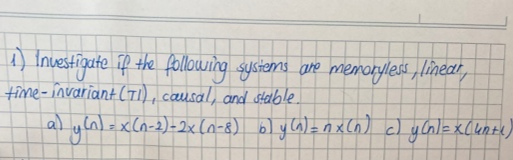 1) Investigate if the following systems are memoryless, linear,
time-invariant (TI), causal, and stable.
a) y(n) = x(n-2)-2x(n-8) b) y(n) = n x(n) c) y(n) = x(4n+1)